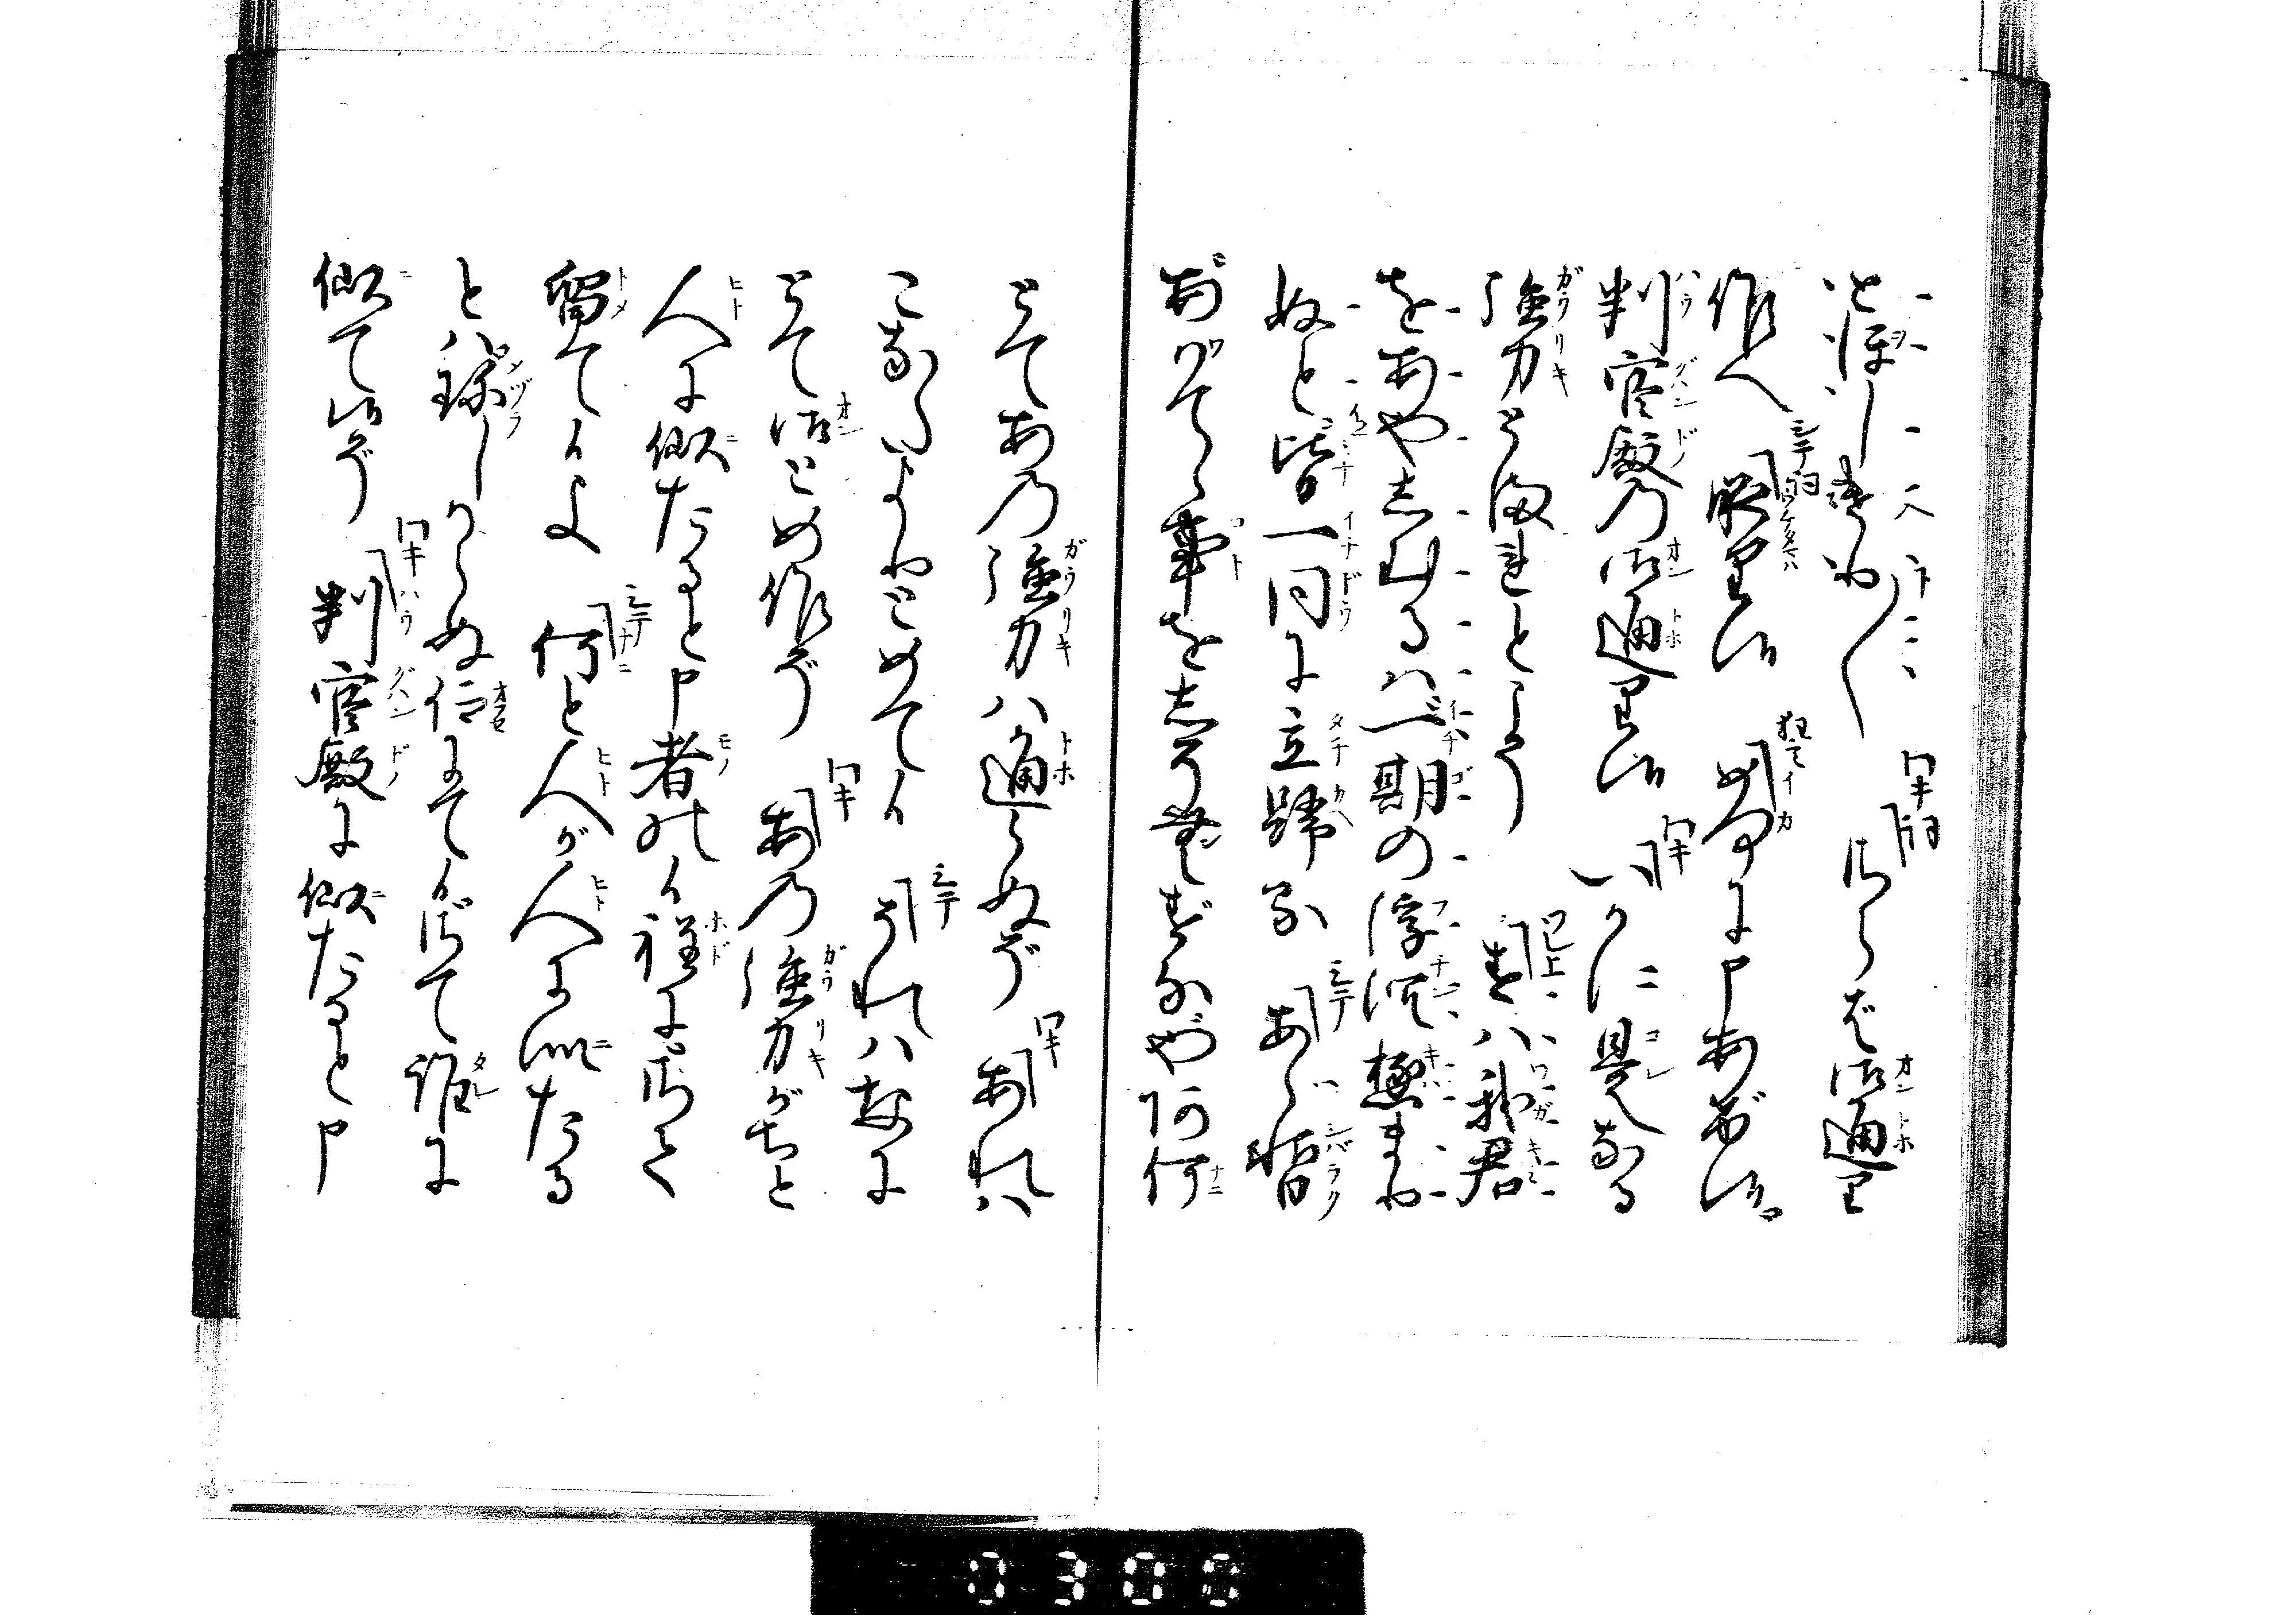 通しけり〳〵 ワキ詞 さらば御通り
候へ シテ詞 承り候 狂言 如何に申あげ候
判官殿の御通り候 ワキ いかに是なる
強力とまれとこそ 上 すは我君
をあやしむるは一期の浮沈極まり
ぬと皆一同に立帰る シテ あゝ暫
あはてゝ事を仕損ずなやあ何
とてあの強力は通らぬぞ ワキ あれは
こなたよりとめて候 シテ それは何に
とて御とめ候ぞ ワキ あの強力がちと
人に似たると申者の候程にさて
留て候よ シテ 何と人が人に似たる
とは珍しからぬ仰にて候さて誰に
似て候ぞ ワキ 判官殿に似たると申